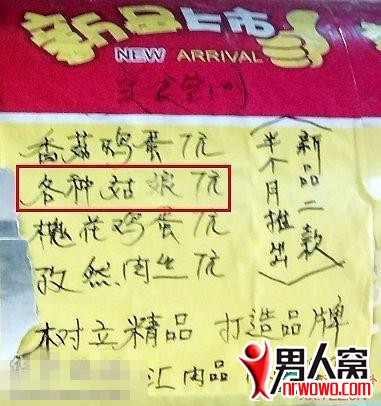 新品上市
NEW ARRIVAL
美食空间
香菇鸡蛋7元
各种姑娘7元
槐花鸡蛋7元
孜然肉丝7元
新品二款
半个月推出
树立精品 打造品牌
汇肉品
男人窝
nrwowo.com